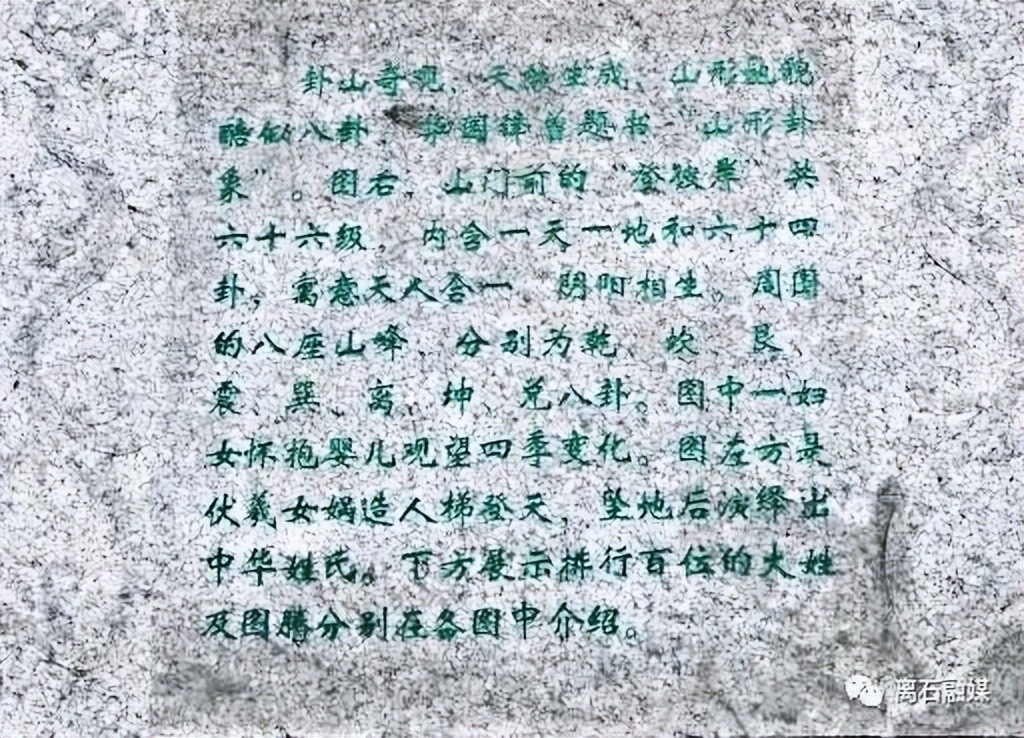 卦山奇观，天然生成，山形地貌
酷似八卦，华国锋曾题书“山形卦
象”。图右，山门前的“登彼岸”共
六十六级，内含一天一地和六十四
卦，寓意天人合一，阴阳相生。周围
的八座山峰，分别为乾、坎、艮、
震、巽、离、坤、兑八卦。图中一妇
女怀抱婴儿观望四季变化。图左方是
伏羲女娲造人梯登天，坠地后演绎出
中华姓氏。下方展示排行百位的大姓
及图腾分别在各图中介绍。
离石融媒